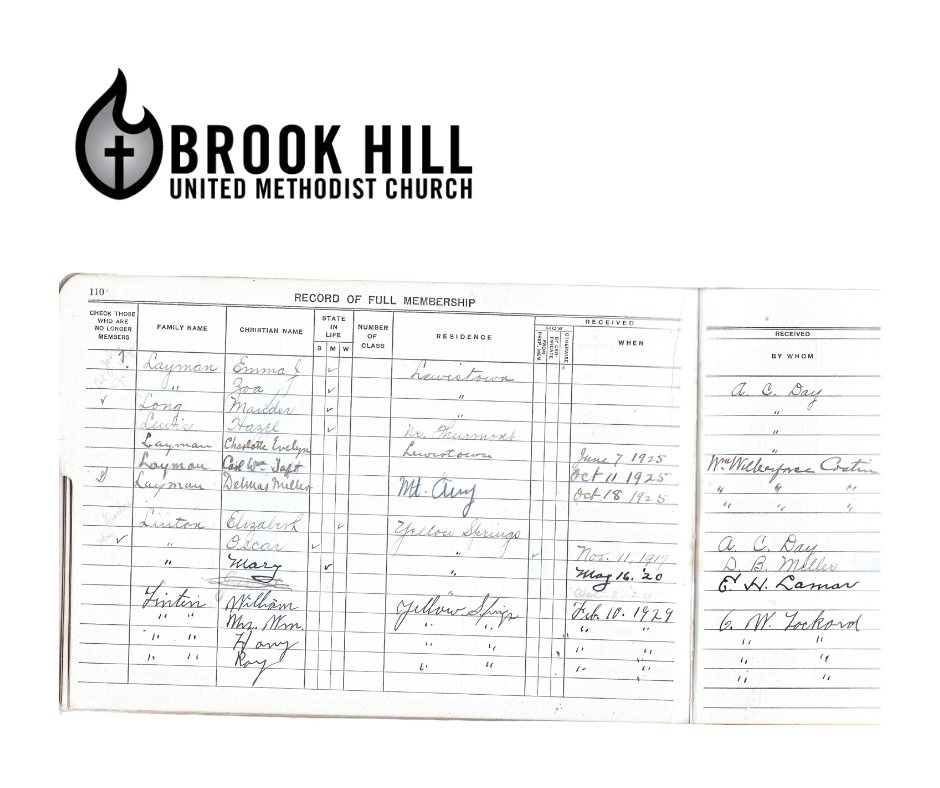 BROOK HILL
UNITED METHODIST CHURCH
110
RECORD OF FULL MEMBERSHIP
CHECK THOSE WHO ARE NO LONGER MEMBERS FAMILY NAME CHRISTIAN NAME STATE IN LIFE S M W NUMBER OF CLASS RESIDENCE RECEIVED HOW FROM PREP. MEM. BY CERTIFICATE OTHERWISE WHEN RECEIVED BY WHOM
Layman Emma J ✓ Lewistown
" Zoa ✓ " A. C. Day
✓ Long Mauder ✓ " "
Lewis Hazel ✓ Nr. Thurmont "
Layman Charlotte Evelyn Lewistown June 7 1925 "
Layman Carl Wm Taft Oct 11 1925 Wm Wilberforce Costin
Layman Delmas Miller Mt. Airy Oct 18 1925 " " "
" " "
Linton Elizabeth ✓ Yellow Springs
✓ " Oscar ✓ " ✓ Nov. 11, 1917 A. C. Day
" Mary ✓ " May 16. '20 D. B. Miller
E. H. Lamar
Lintin William Yellow Spgs Feb. 10. 1929
" " Mrs. Wm. " " " " C. W. Lockard
" " Harry " " " " " "
" " Roy " " " " " "
" "